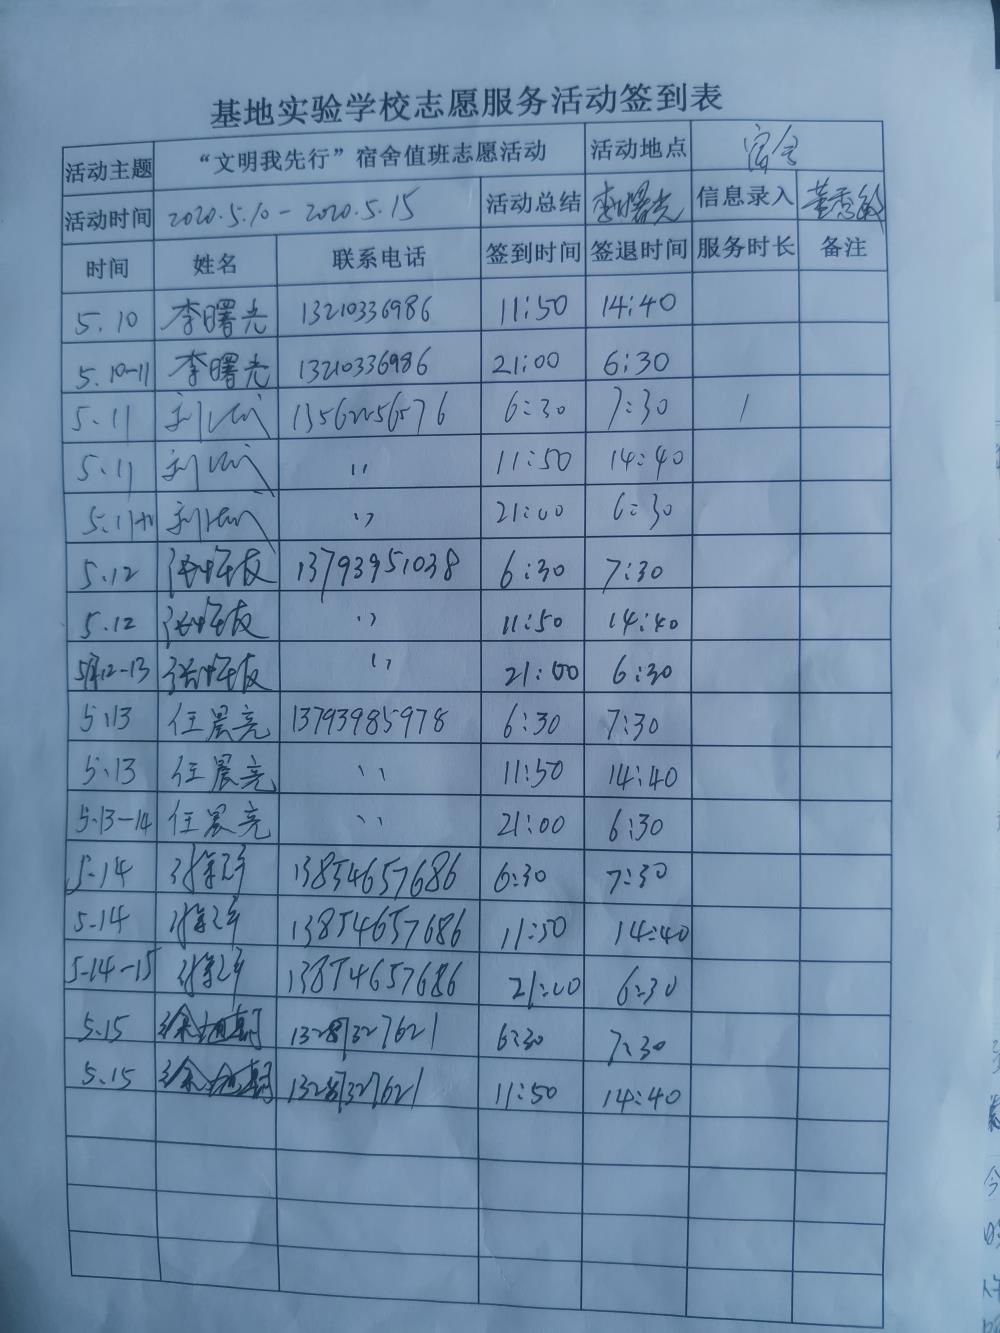 基地实验学校志愿服务活动签到表
活动主题 “文明我先行”宿舍值班志愿活动 活动地点 宿舍
活动时间 2020.5.10-2020.5.15 活动总结 李曙光 信息录入 董秀敏
时间 姓名 联系电话 签到时间 签退时间 服务时长 备注
5.10 李曙光 13210336986 11:50 14:40
5.10-11 李曙光 13210336986 21:00 6:30
5.11 13562256576 6:30 7:30 1
5.11 〃 11:50 14:40
〃 21:00 6:30
5.12 13793951038 6:30 7:30
5.12 〃 11:50 14:40
5月12-13 〃 21:00 6:30
5.13 任晨亮 13793985978 6:30 7:30
5.13 任晨亮 〃 11:50 14:40
5.13-14 任晨亮 〃 21:00 6:30
5.14 13854657686 6:30 7:30
5.14 13854657686 11:50 14:40
5.14-15 13854657686 21:00 6:30
5.15 13287327621 6:30 7:30
5.15 13287327621 11:50 14:40